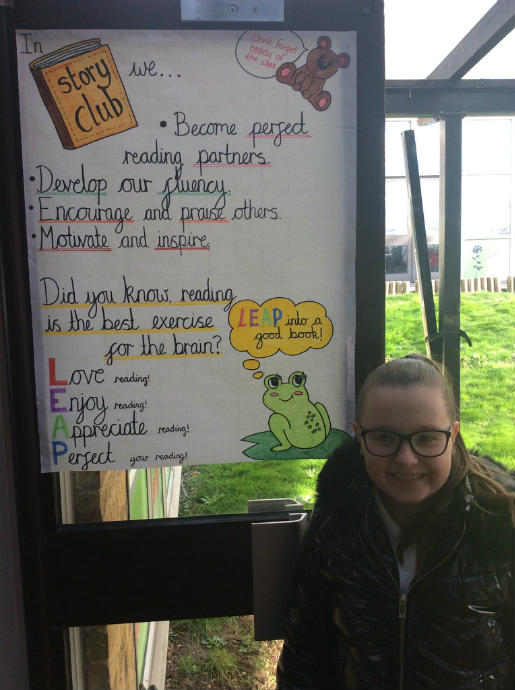 In
story
club
we...
Don't forget
teddy of
the week
• Become perfect
reading partners.
• Develop our fluency.
• Encourage and praise others.
• Motivate and inspire
Did you know, reading
is the best exercise
for the brain?
LEAP into a
good book!
Love reading!
Enjoy reading!
Appreciate reading!
Perfect your reading!